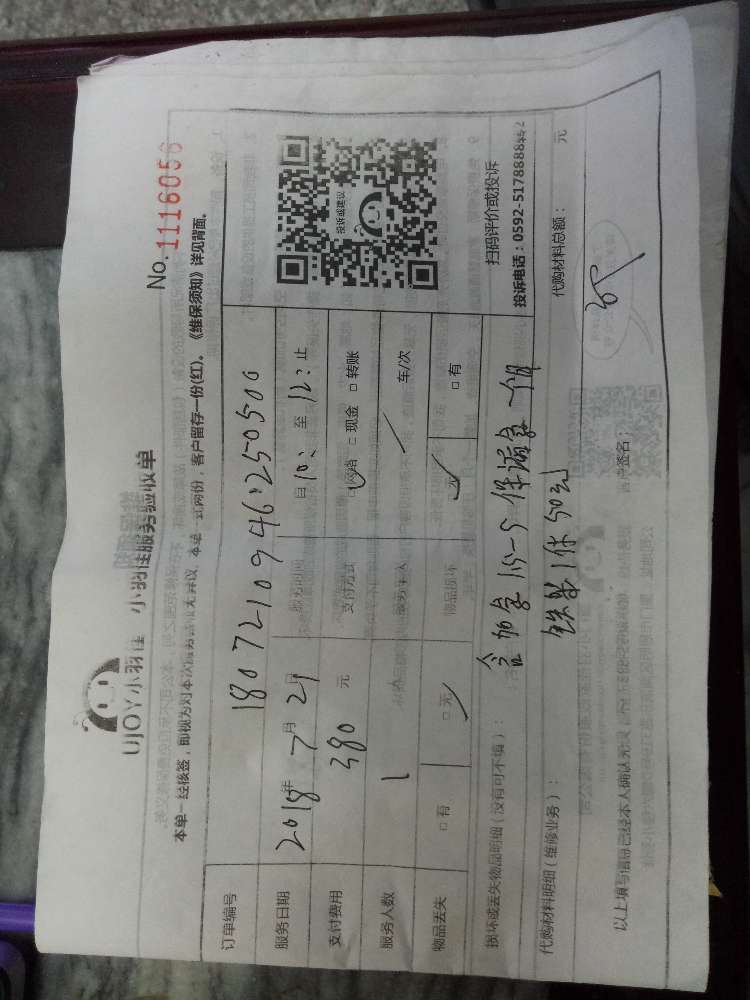 UJOY小羽佳 小羽佳服务验收单
No. 1116056
本单一经核签，即视为对本次服务质量无异议，本单一式两份，客户留存一份(红)。《维保须知》详见背面。
订单编号 180721094625050 0
服务日期 2018年 7月 21日 服务时间 自 10: 至 12: 止
支付费用 380 元 支付方式 ☑网络 □现金 □转账
服务人数 1 服务车次 / 车/次
物品丢失 □有 ☑无 物品损坏 ☑无 □有
投诉或建议
扫码评价或投诉
投诉电话：0592-5178888转2
损坏或丢失物品明细（没有可不填）：
代购材料明细（维修业务）：
代购材料总额： 元
以上填写信息已经本人确认无误
客户签名：